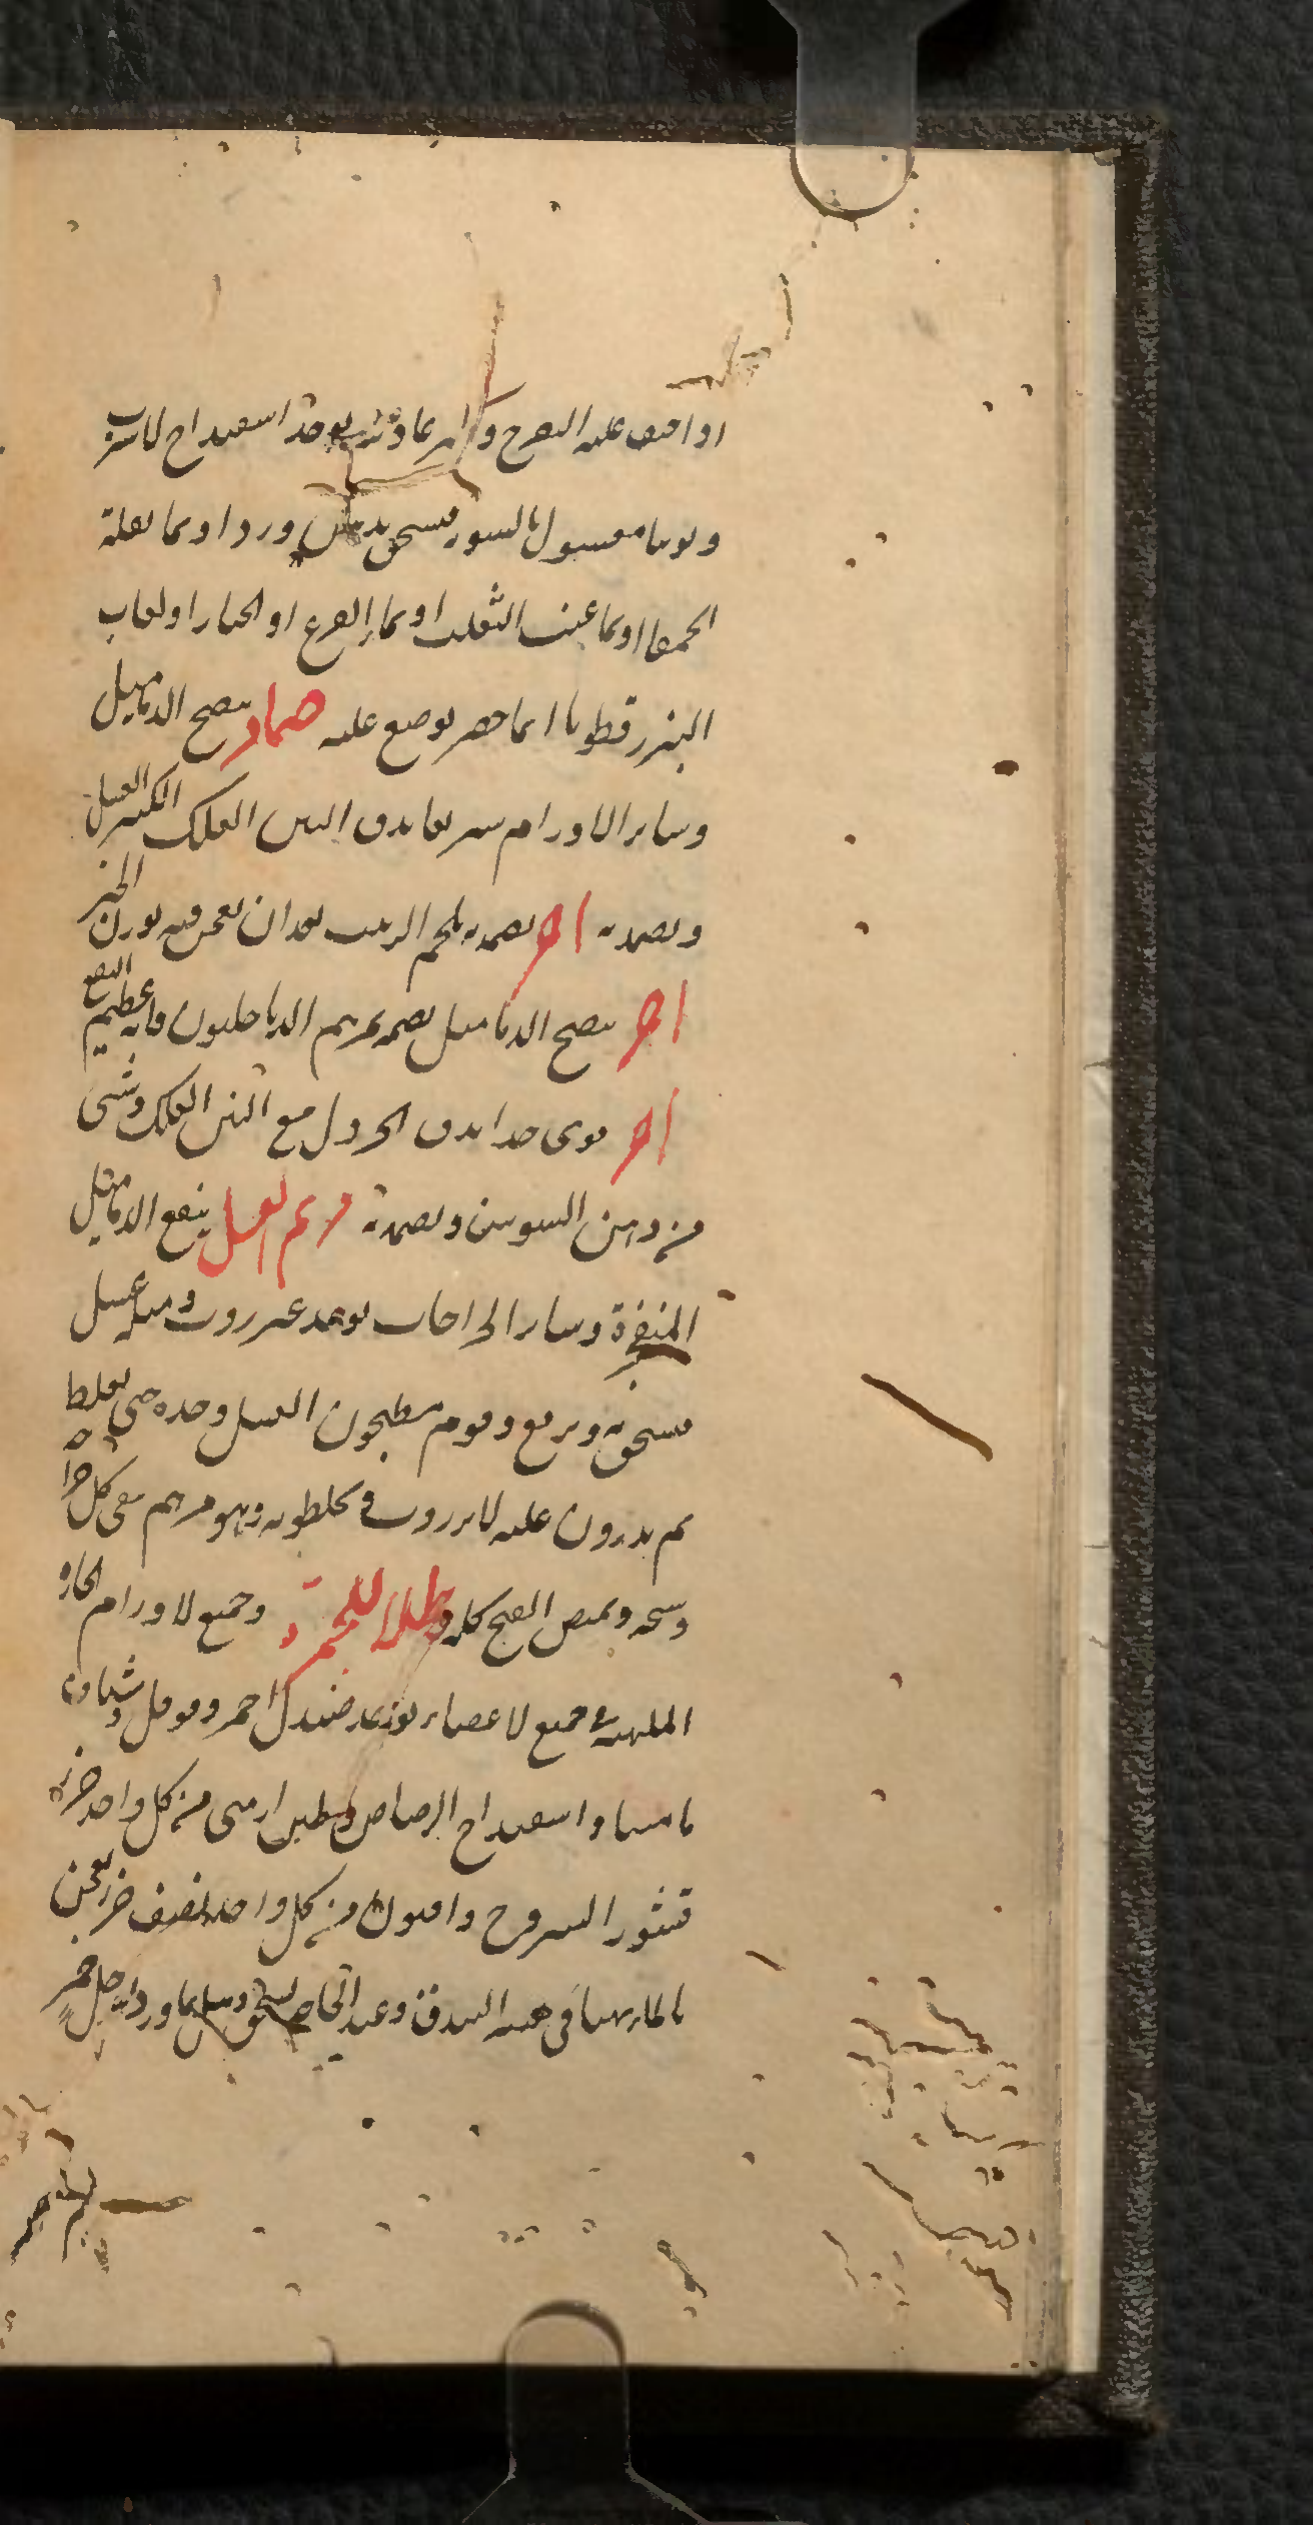 او اضيف عليه التقرح و يوخذ اسفيداج الاسرب
وتوتيا مغسول بالسويه يسحق بدهن ورد او بما بقلة
الحمقا او بما عنب الثعلب او بماء القرع او الخيار او لعاب
البزرقطونا ايما حضر يوضع عليه ضماد ينضج الدماميل
وساير الاورام سريعا يدق التين العلك الكثير العسل
ويضمد به اخر يضمد بلحم الزبيب بعد ان يعجن فيه بورق الخبز
اخر ينضج الدماميل يضمد بمرهم الدياخليون فانه عظيم النفع
اخر قوى جدا يدق الخردل مع التين العلك وشى
من دهن السوسن ويضمد به مرهم العسل ينفع الدماميل
المنفجرة وساير الجراحات يوخذ عنزروت ومثله عسل
يسحق ويرفع وقوم يطبخون العسل وحده حتى يغلظ
ثم يذرون عليه الانزروت ويخلطونه وهو مرهم ينقى كل جراحة
وسخه ويمص القيح كله طلاء للحمرة وجميع الاورام الحاره
الملتهبه فى جميع الاعضاء يوخذ صندل احمر وفوفل وشياف
ماميثا واسفيداج الرصاص وطين ارمنى من كل واحد جزء
قشور اليبروح وافيون من كل واحد نصف جزء يعجن
بالماء بنادق وعند الحاجه يسحق بماورد او خل خمر